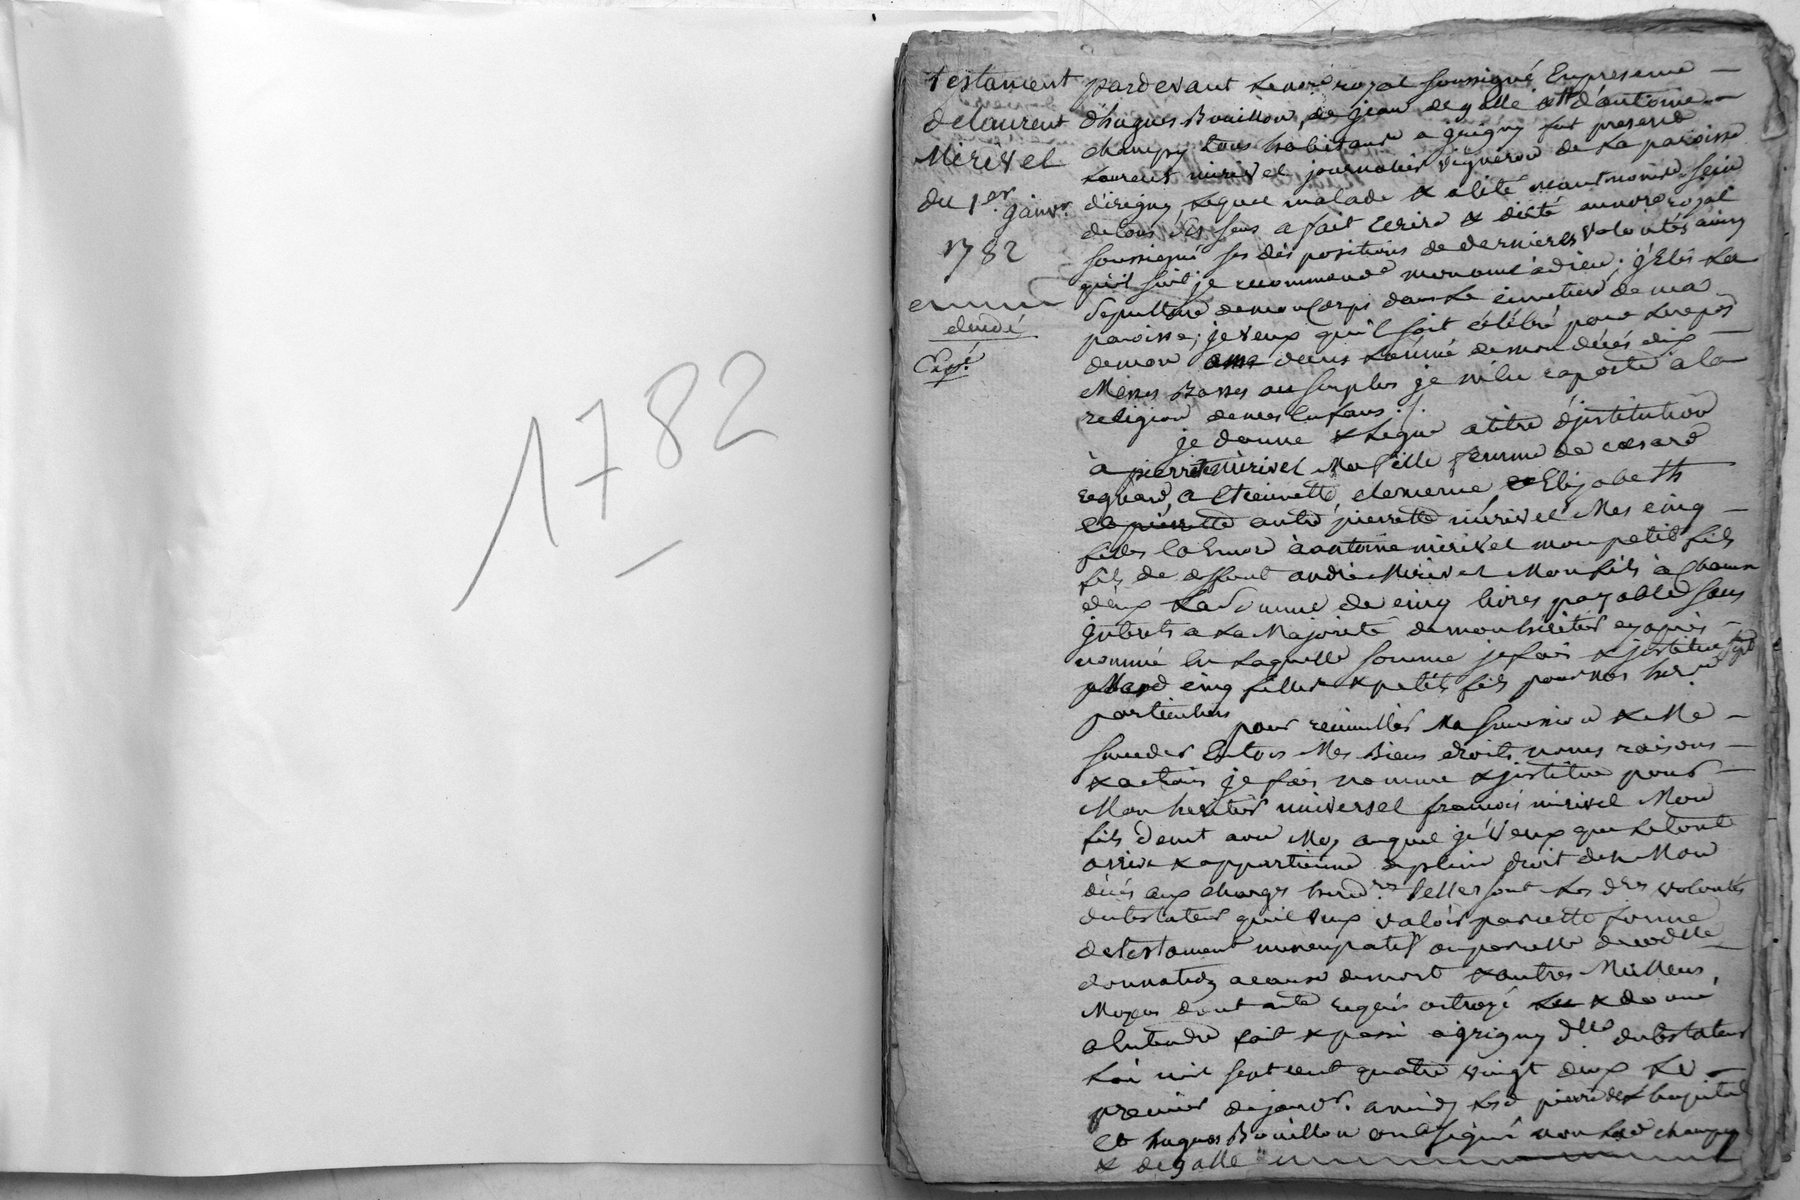 1782
testament
de Laurent
Mirivel
du 1er janvr.
1782
Exp.é
pardevant le nore royal soussigné En presence
d'hugues Bouillon, de jean degalle & d'antoine
champy tous habitans a grigny fut present
Laurent mirivel journalier vigneron de la paroisse
d'irigny, lequel malade & alité neantmoins sein
de tous ses sens a fait Ecrire & dicté au nore royal
soussigné ses dispositions de dernieres volontés ainsy
qu'il suit je recommande mon ame à dieu, j'Elis la
sepulture de mon Corps dans le cimetiere de ma
paroisse; je veux qu'il soit célébré pour le repos
de mon ame dans l'année de mon décés dix
Messes Basses au surplus je m'en raporte à la
religion de mes Enfans ./.
je donne & legue a titre d'jnstitution
à pierrette mirivel Ma fille femme de cesard
a Etiennette, clemence, Elizabeth
et pierrette autre pierrette mirivel Mes cinq
filles Encore à antoine mirivel mon petit fils
fils de deffunt andré Mirivel Mon fils à Chacun
d'eux La somme de cinq livres payable sans
jnterets a La Majorité de mon heritier cy apres
nommé En Laquelle somme je fais & jnstitue
cinq filles & petit fils pour mes hers
particuliers
pour recueillir Ma succession & Me
succeder En tous Mes Biens droits noms raisons
& actions je fais nomme & jnstitue pour
Mon heritier universel francois mirivel Mon
fils dem.t avec Moy auquel je veux que le tout
arrive & appartienne de plein droit des Mon
décés aux charges hered.res telles sont les d.res volontés
du testateur qu'il veux valoir par cette forme
de testament nuncupatif ou par celle de codille
donnation a cause de mort & autres Meilleurs
Moyens dont acte requis octroyé & donné
a Entendre fait & passé a grigny d.lle du testateur
L'an mil sept cent quatre vingt deux Le
premier de janvr. a midy Led. pierre
et hugues Bouillon ont signé non Led champy
& degalle